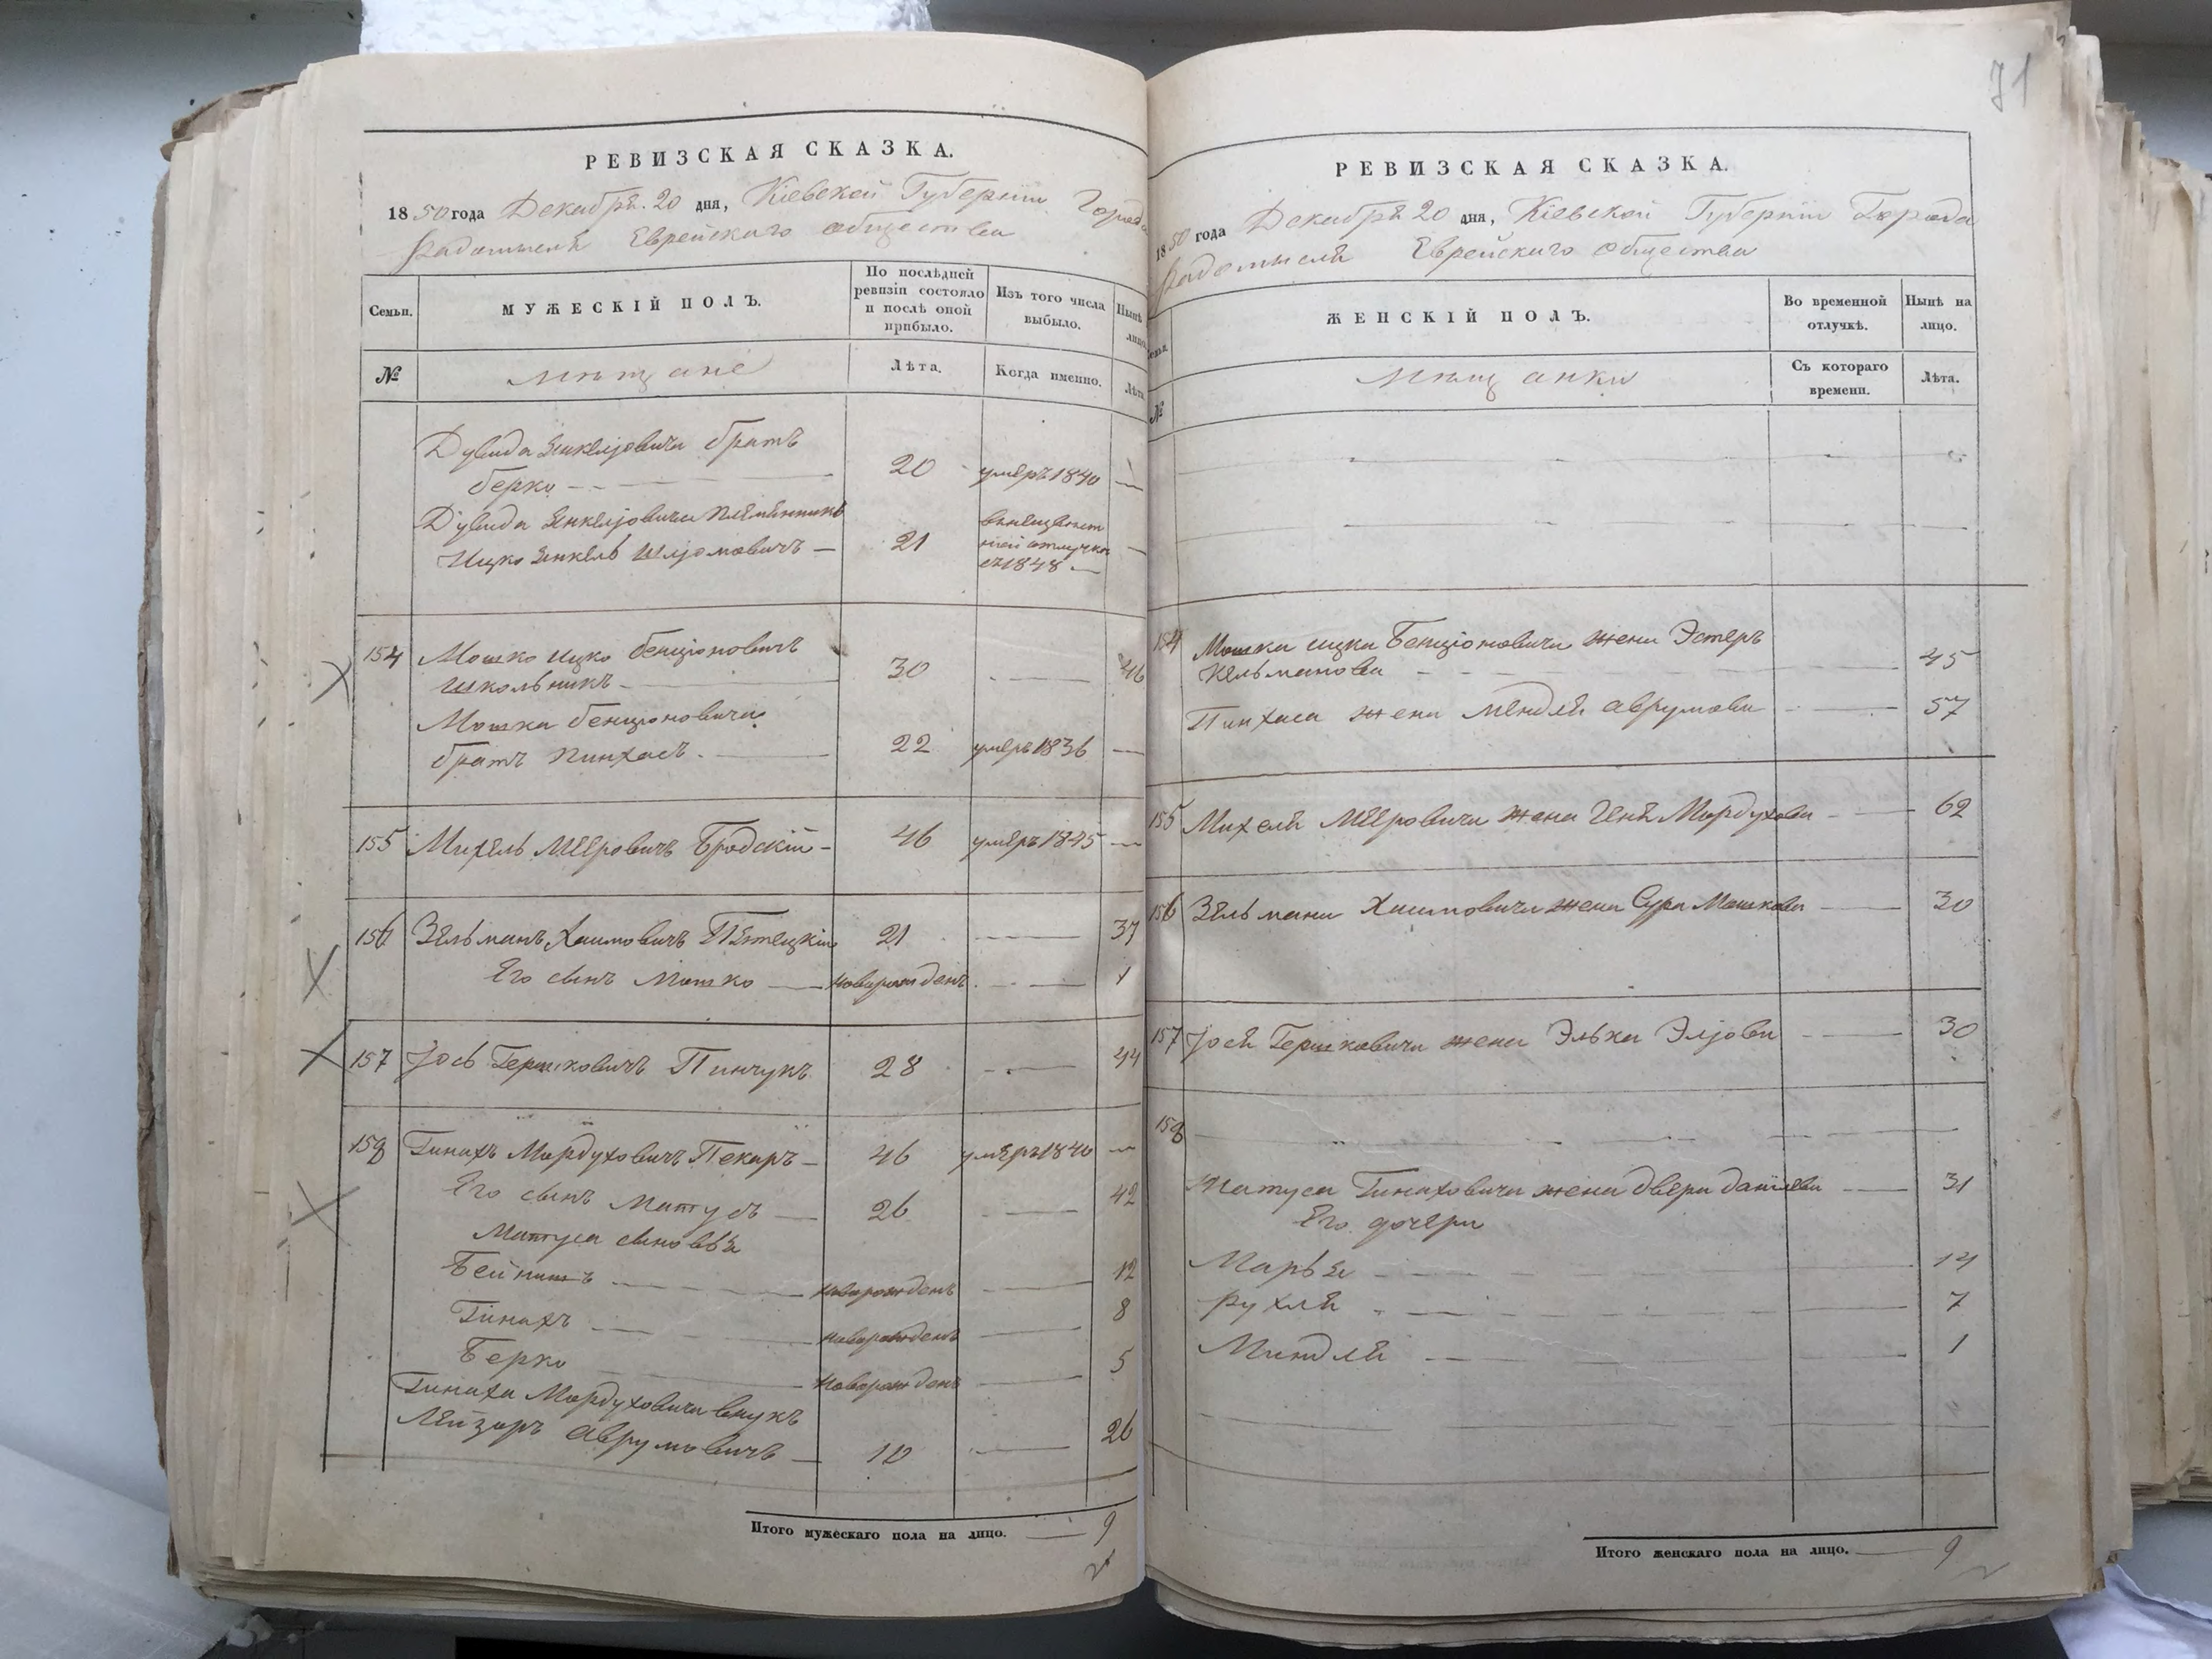 РЕВИЗСКАЯ СКАЗКА.
1850 года Декабря 20 дня, Кіевской Губерніи Города
Радомысля Еврейскаго общества
Семьи.
МУЖЕСКІЙ ПОЛЪ.
По послѣдней
ревизіи состояло
и послѣ оной
прибыло.
Изъ того числа
выбыло.
Нынѣ
лицо.
№
мѣщане
Лѣта.
Когда именно.
Лѣта
Дувида Янкелiовича братъ
берко 20 умеръ 1840
Дувида Янкелiовича племянникъ
Ицко Янкель Шлiомовичъ 21
отлучке
съ 1848
154 Мошко Ицко бенцiоновичъ
Школьникъ 30 46
Мошка бенцiоновича
братъ Пинхасъ 22 умеръ 1836
155 Михель Мееровичъ Бродскій 46 умеръ 1845
156 Зельманъ Хаимовичъ 21 37
Его сынъ Мошко новорожденъ 1
157 Iось Гершковичъ Пинчукъ 28 44
158 Гинахъ Мордуховичъ Пекарь 46 умеръ 1840
Его сынъ Матусъ 26 42
Матуса сыновья
Бейнишъ новорожденъ 12
Гинахъ новорожденъ 8
Берко новорожденъ 5
Гинаха Мордуховича внукъ
Лейзоръ Аврумовичъ 10 26
Итого мужескаго пола на лицо. 9
71
РЕВИЗСКАЯ СКАЗКА.
1850 года Декабря 20 дня, Кіевской Губерніи Города
Радомысля Еврейскаго общества
Семьи.
ЖЕНСКІЙ ПОЛЪ.
Во временной
отлучкѣ.
Нынѣ на
лицо.
№
мѣщанки
Съ котораго
времени.
Лѣта.
154 Мошка ицка Бенцiоновича жена Эстеръ
Кельманова 45
Пинхаса жена Мендля аврумова 57
155 Михеля Мееровича жена Геня Мордухова 62
156 Зельмана Хаимовича жена Сура Мошкова 30
157 Iося Гершковича жена Элька Элiова 30
158
Матуса Гинаховича жена двера данiлева 31
Его дочери
Марья 14
Рухля 7
Миндля 1
Итого женскаго пола на лицо. 9